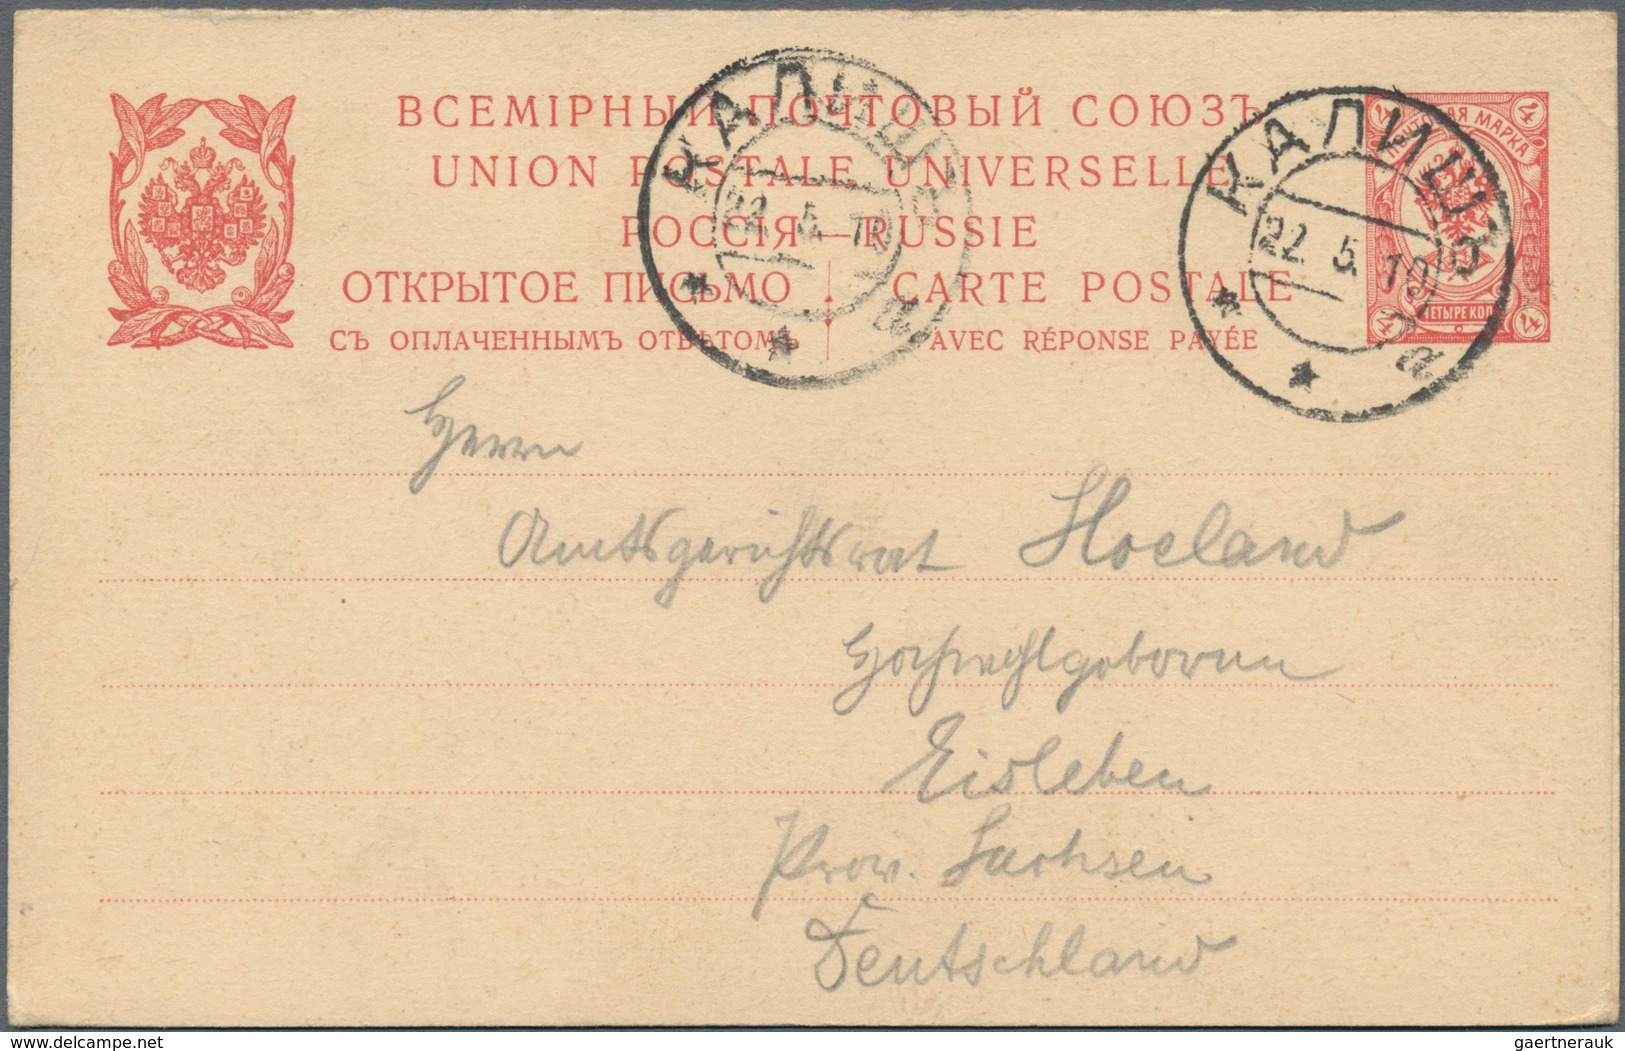 ВСЕМІРНЫЙ ПОЧТОВЫЙ СОЮЗЪ
UNION POSTALE UNIVERSELLE
РОССІЯ—RUSSIE
ОТКРЫТОЕ ПИСЬМО CARTE POSTALE
СЪ ОПЛАЧЕННЫМЪ ОТВѢТОМЪ AVEC RÉPONSE PAYÉE
КАЛИШЪ
22. 5. 10
а
КАЛИШЪ
22. 5. 10
а
4 МАРКА 4
4 ЧЕТЫРЕ КОП. 4
Herrn
Amtsgerichtsrat Hoeland
Hochwohlgeboren
Eisleben
Prov. Sachsen
Deutschland
delcampe.net
gaertnerauk